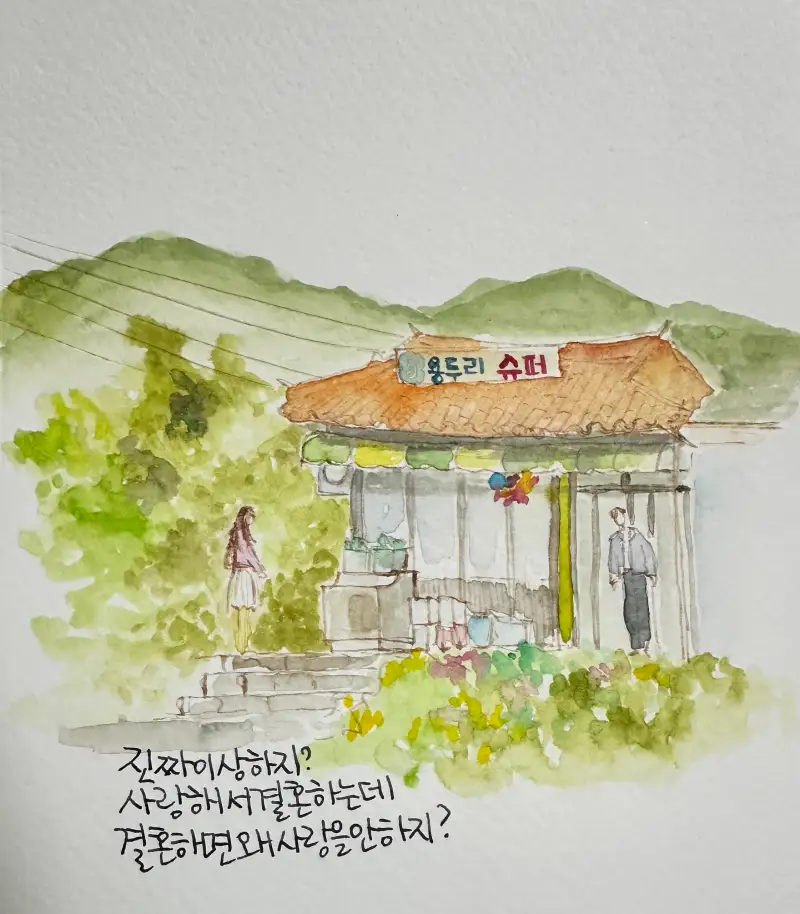 용두리 슈퍼
진짜이상하지?
사랑해서결혼하는데
결혼하면왜사랑을안하지?